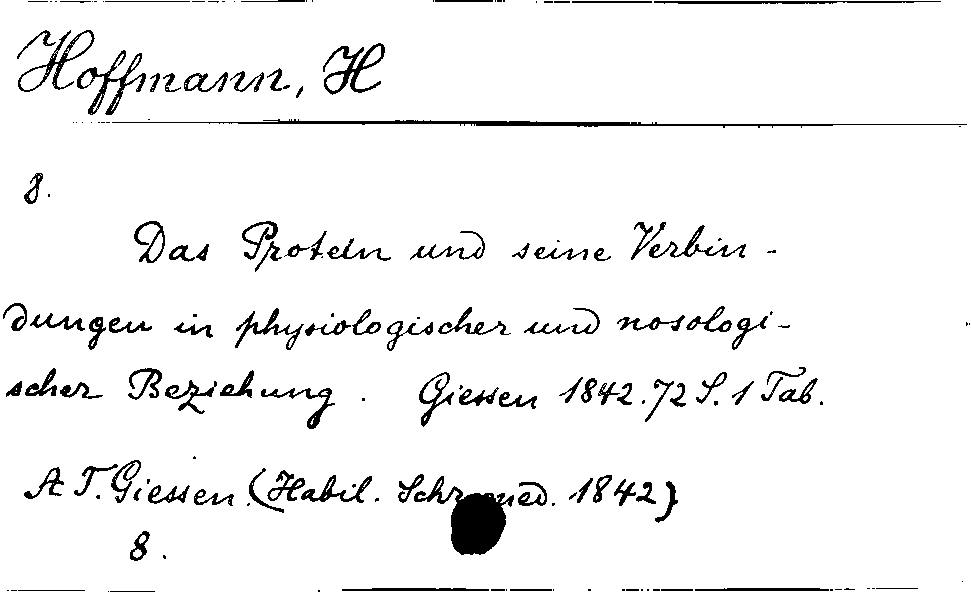 Hoffmann, H
8.
Das Protein und seine Verbin-
dungen in physiologischer und nosologi-
scher Beziehung. Giessen 1842. 72 S. 1 Tab.
A T. Giessen (Habil. Schr. med. 1842)
8.